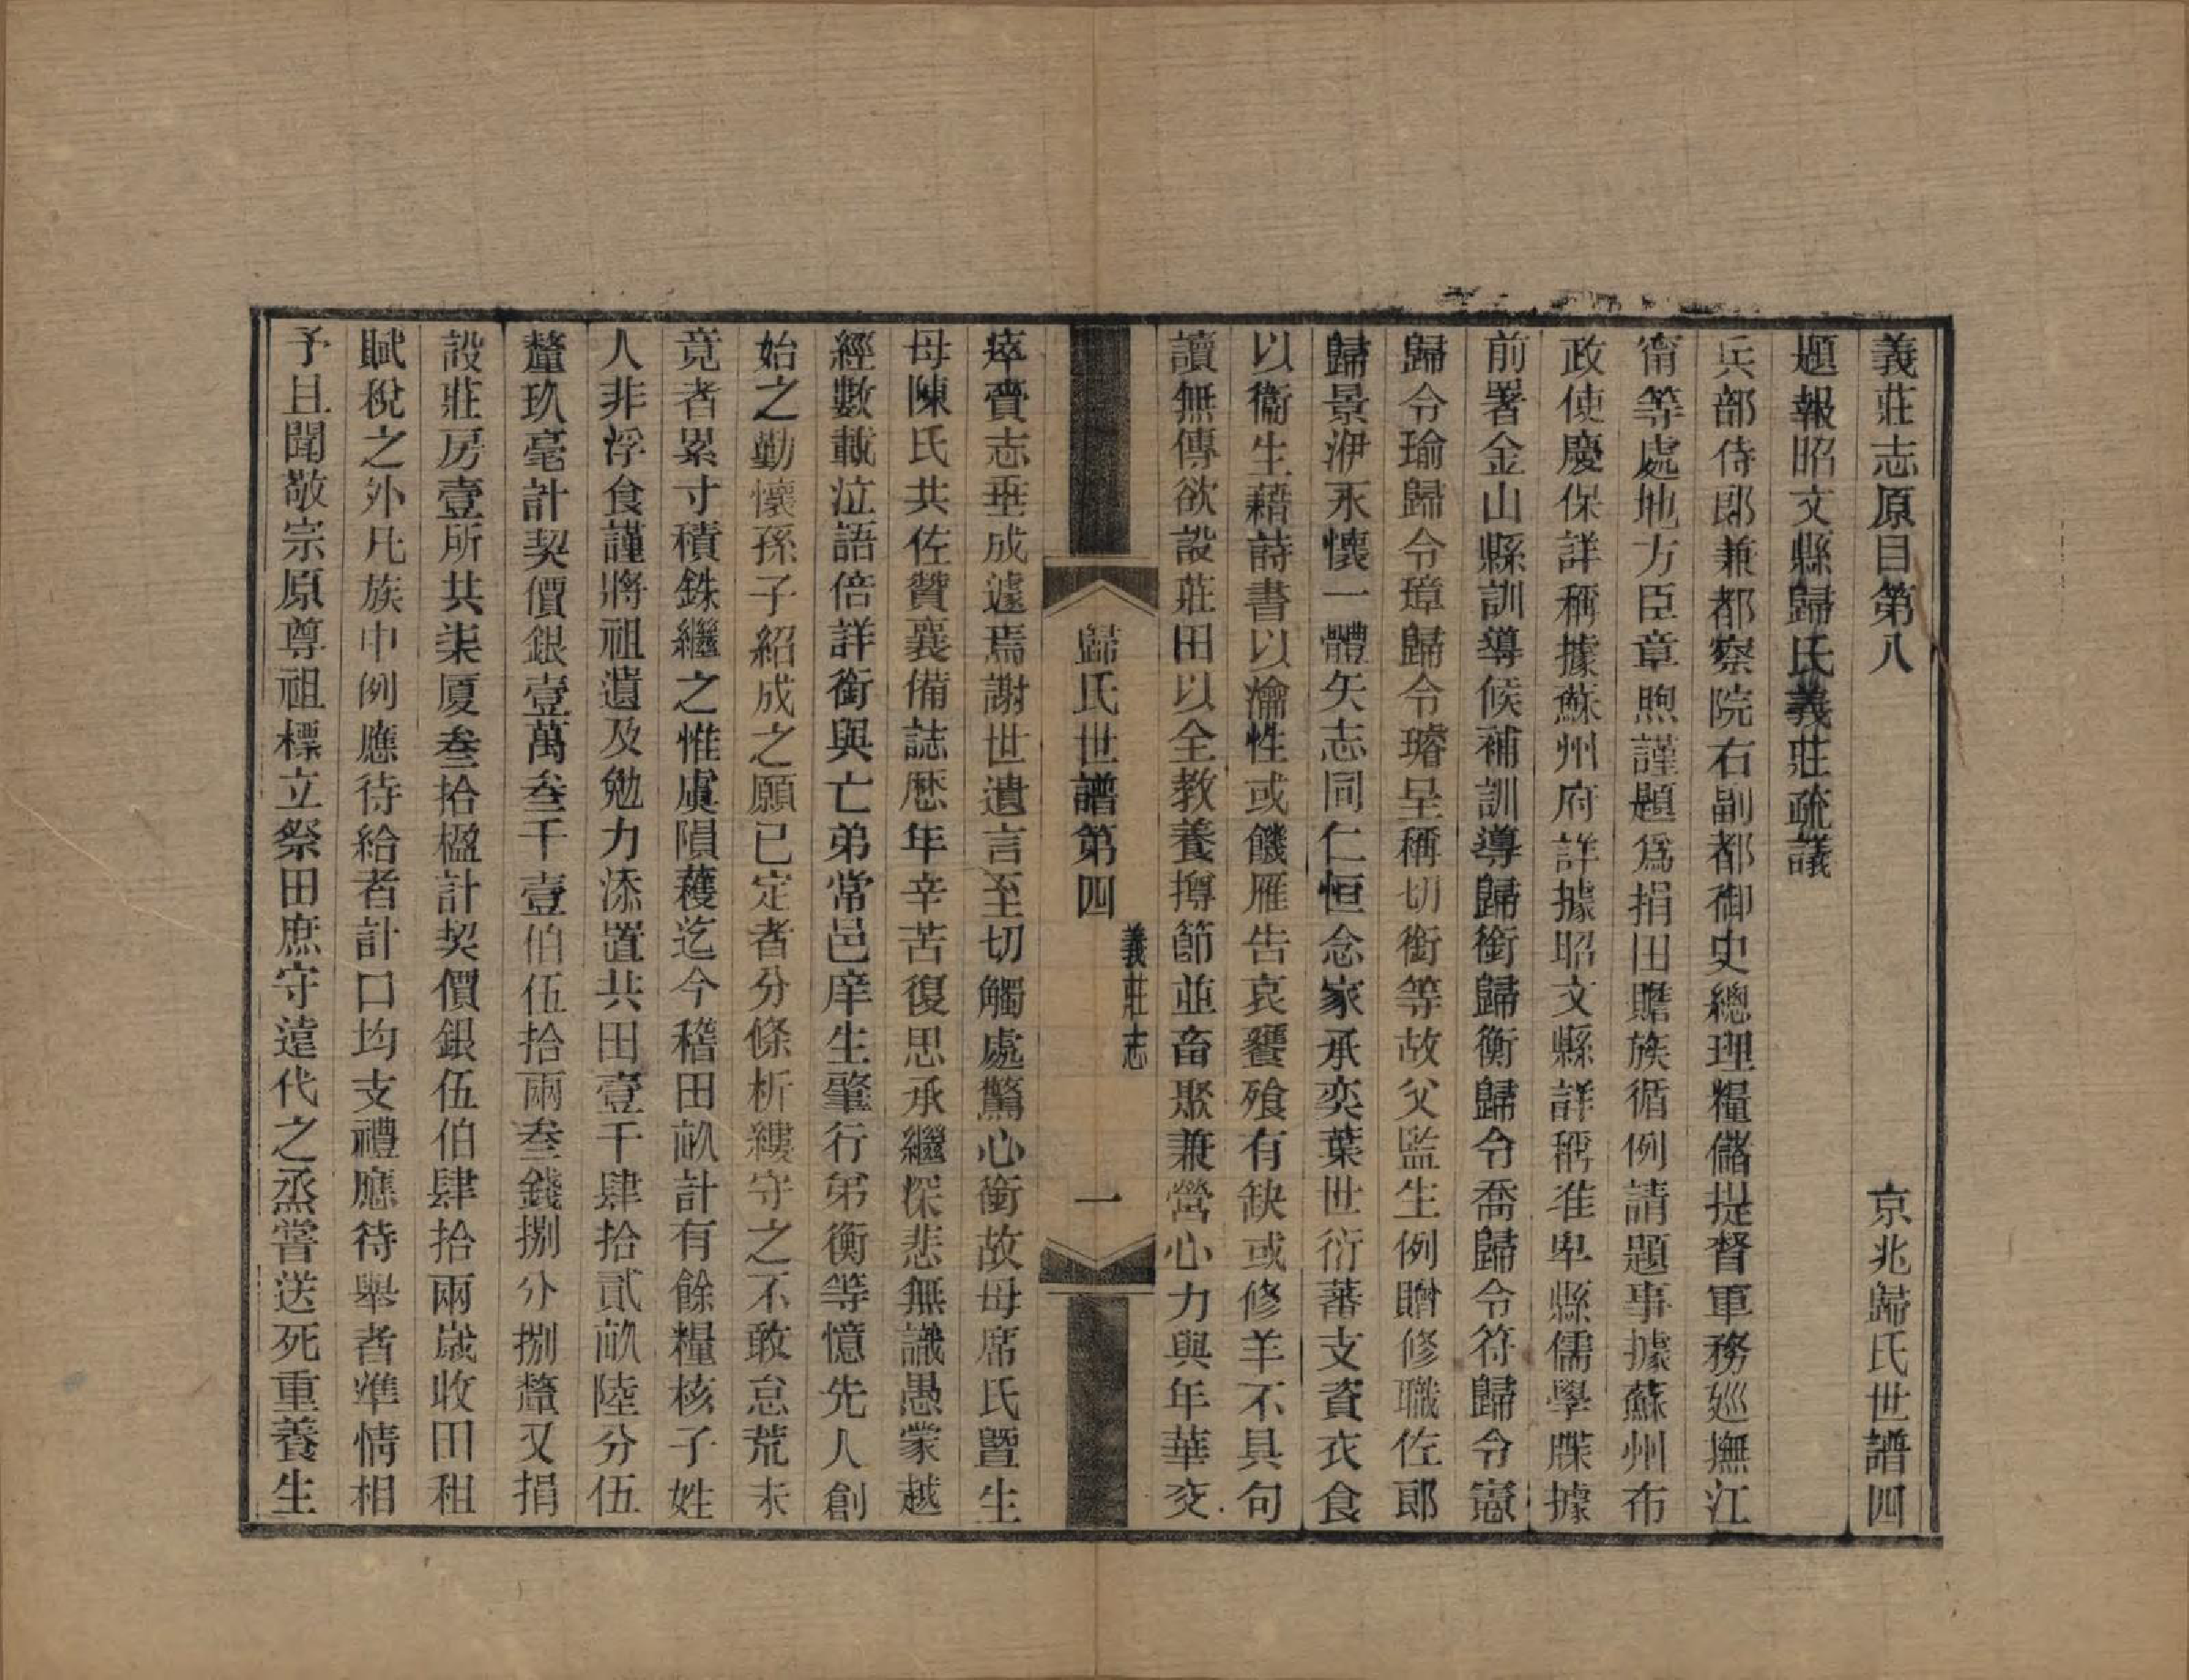 義莊志原目第八　京兆歸氏世譜四
題報昭文縣歸氏義莊疏議
兵部侍郎兼都察院右副都御史總理糧儲提督軍務廵撫江
甯等處地方臣章煦謹題爲捐田贍族循例請題事據蘇州布
政使慶保詳稱據蘇州府詳據昭文縣詳稱准卑縣儒學牒據
前署金山縣訓導候補訓導歸銜歸衡歸令喬歸令符歸令憲
歸令瑜歸令璋歸令璿呈稱切銜等故父監生例贈修職佐郎
歸景洢永懷一體矢志同仁恒念家承奕葉世衍蕃支資衣食
以衞生藉詩書以瀹性或饑雁告哀饔飱有缺或修羊不具句
讀無傳欲設莊田以全教養撙節並畜聚兼營心力與年華交
瘁賷志垂成遽焉謝世遺言至切觸處驚心銜故母席氏曁生
母陳氏共佐贊襄備誌歷年辛苦復思承繼深悲無識愚蒙越
經數載泣語倍詳銜與亡弟常邑庠生肇行弟衡等憶先人創
始之勤懷孫子紹成之願已定者分條析縷守之不敢怠荒未
竟者累寸積銖繼之惟虞隕穫迄今稽田畝計有餘糧核子姓
人非浮食謹將祖遺及勉力添置共田壹千肆拾貳畝陸分伍
釐玖毫計契價銀壹萬叁千壹伯伍拾兩叁錢捌分捌釐又捐
設莊房壹所共柒厦叁拾楹計契價銀伍伯肆拾兩歲收田租
賦稅之外凡族中例應待給者計口均支禮應待舉者準情相
予且聞敬宗原尊祖標立祭田庶守遠代之烝嘗送死重養生
歸氏世譜第四　義莊志　一